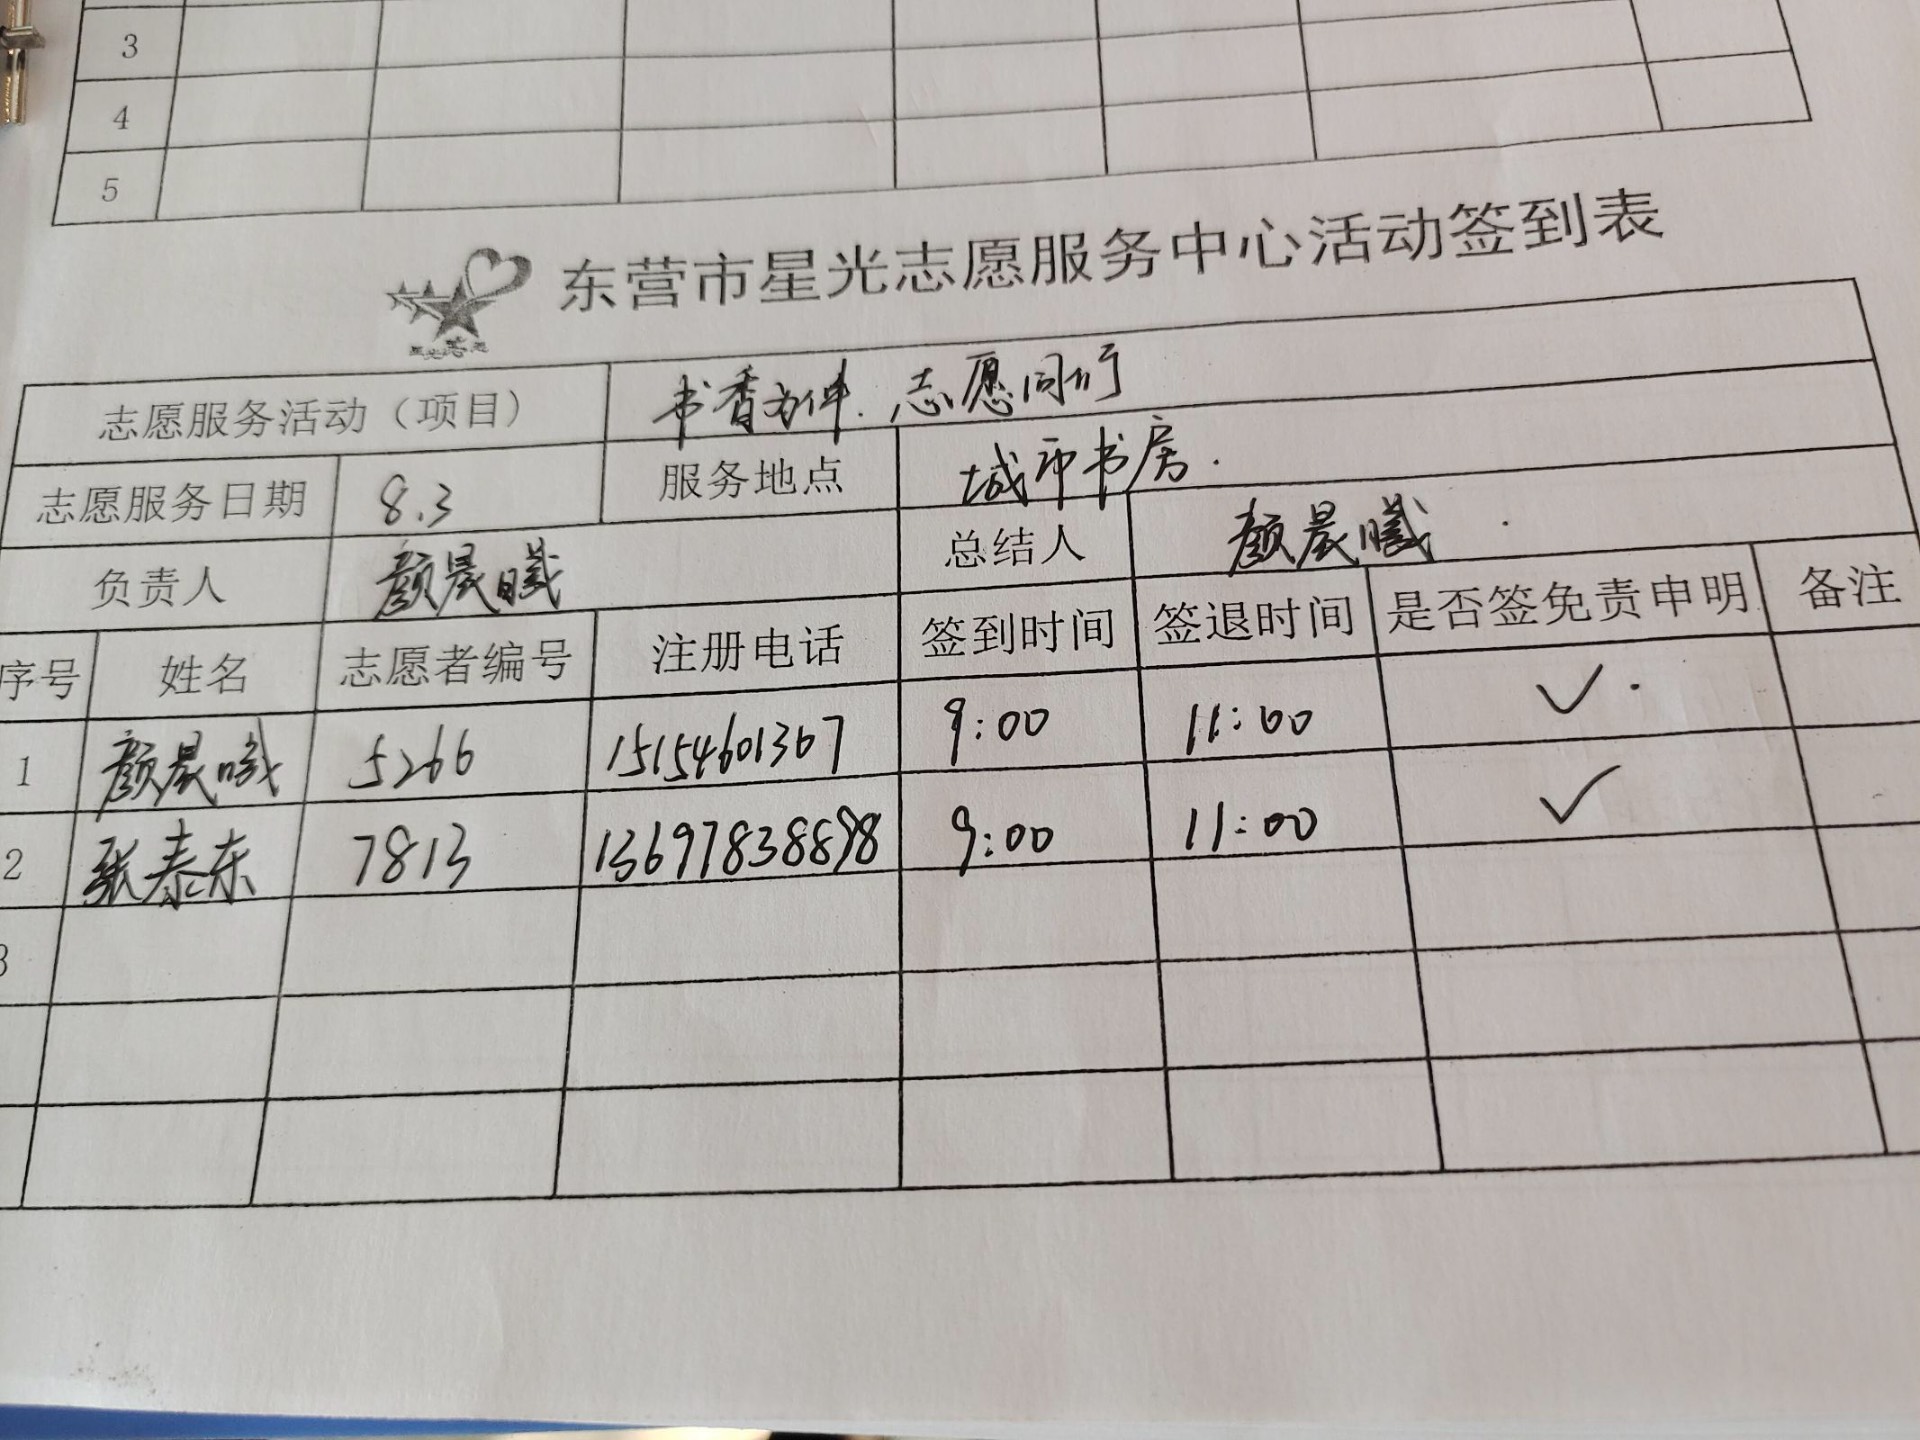 3
4
5
东营市星光志愿服务中心活动签到表
志愿服务活动（项目） 书香为伴.志愿同行
志愿服务日期 8.3 服务地点 城市书房.
负责人 颜晨曦 总结人 颜晨曦
序号 姓名 志愿者编号 注册电话 签到时间 签退时间 是否签免责申明 备注
1 颜晨曦 5266 15154601367 9:00 11:00 ✓
2 张泰东 7813 13697838898 9:00 11:00 ✓
3